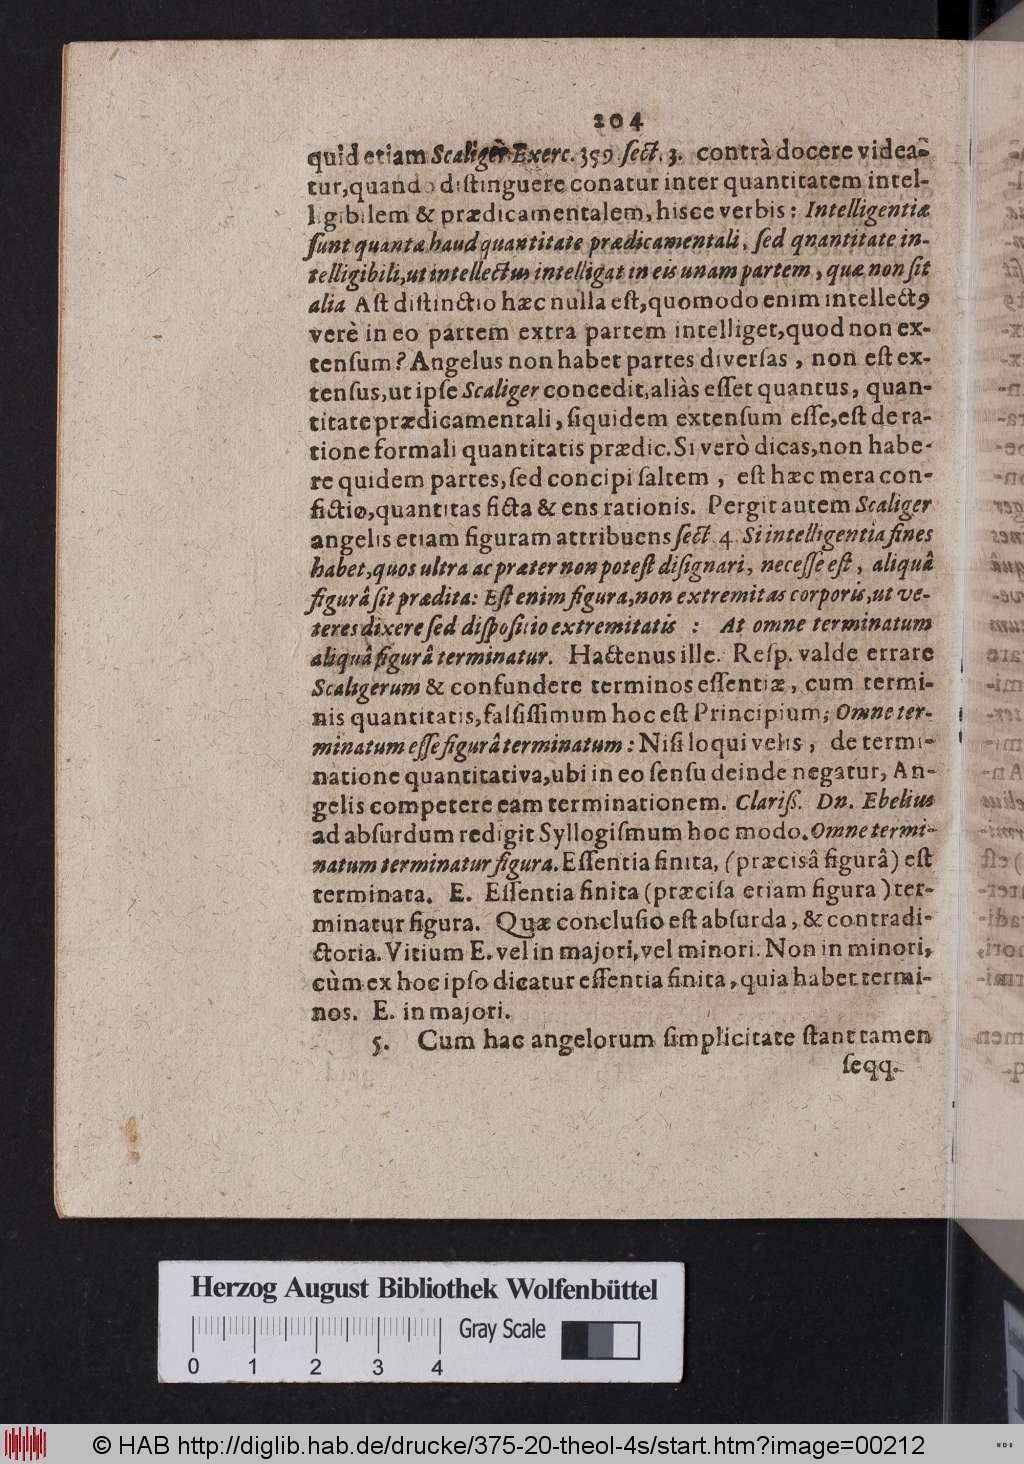 204
quid etiam Scaliger Exerc. 359 ſect. 3. contrà docere videa-
tur, quando diſtinguere conatur inter quantitatem intel-
ligibilem & prædicamentalem, hisce verbis: Intelligentiæ
ſunt quantæ haud quantitate prædicamentali, ſed qnantitate in-
telligibili, ut intellectus intelligat in eis unam partem, quæ non ſit
alia Aſt diſtinctio hæc nulla eſt, quomodo enim intellectꝰ
verè in eo partem extra partem intelliget, quod non ex-
tenſum? Angelus non habet partes diverſas, non eſt ex-
tenſus, ut ipſe Scaliger concedit, aliàs eſſet quantus, quan-
titate prædicamentali, ſiquidem extenſum eſſe, eſt de ra-
tione formali quantitatis prædic. Si verò dicas, non habe-
re quidem partes, ſed concipi ſaltem, eſt hæc mera con-
fictio, quantitas ficta & ens rationis. Pergit autem Scaliger
angelis etiam figuram attribuens ſect. 4. Si intelligentia fines
habet, quos ultra ac præter non poteſt diſignari, neceſſe eſt, aliquâ
figurâ ſit prædita: Eſt enim figura, non extremitas corporis, ut ve-
teres dixere ſed diſpoſitio extremitatis : At omne terminatum
aliquâ figurâ terminatur. Hactenus ille. Reſp. valde errare
Scaligerum & confundere terminos eſſentiæ, cum termi-
nis quantitatis, falſiſſimum hoc eſt Principium; Omne ter-
minatum eſſe figurâ terminatum: Niſi loqui velis, de termi-
natione quantitativa, ubi in eo ſenſu deinde negatur, An-
gelis competere eam terminationem. Clariſſ. Dn. Ebelius
ad abſurdum redigit Syllogiſmum hoc modo. Omne termi-
natum terminatur figura. Eſſentia finita, (præcisâ figurâ) eſt
terminata. E. Eſſentia finita (præciſa etiam figura) ter-
minatur figura. Quæ concluſio eſt abſurda, & contradi-
ctoria. Vitium E. vel in majori, vel minori. Non in minori,
cùm ex hoc ipſo dicatur eſſentia finita, quia habet termi-
nos. E. in majori.
5. Cum hac angelorum ſimplicitate ſtant tamen
ſeqq.
Herzog August Bibliothek Wolfenbüttel
Gray Scale
0 1 2 3 4
© HAB http://diglib.hab.de/drucke/375-20-theol-4s/start.htm?image=00212